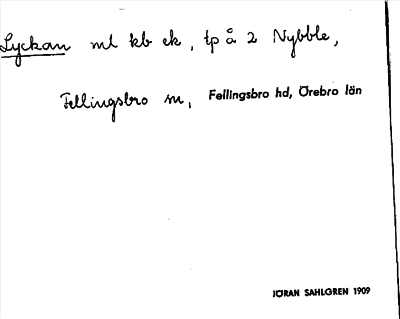 Lyckan ml kb ek, tp å 2 Nybble,
Fellingsbro sn, Fellingsbro hd, Örebro län
JÖRAN SAHLGREN 1909